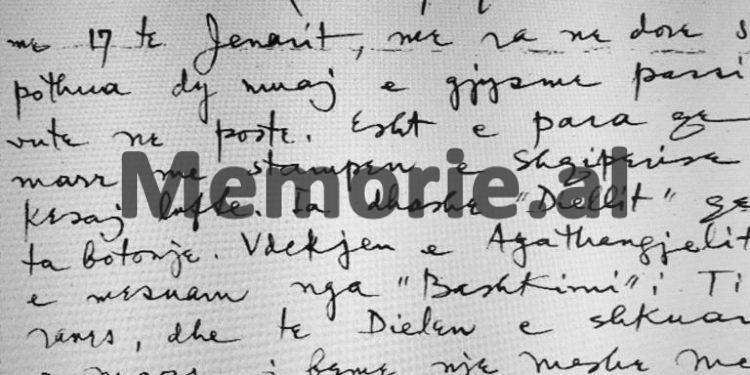 me 17 te Jenarit, me ra ne dore s
pothua dy muaj e gjysme passi
vute ne poste. Esht e para qe
marr me stampen e Shqiperise
Kesaj lufte. Ia dhashe "Diellit" qe
ta botonje. Vdekjen e Agathangjelit
e mesuam nga "Bashkimi" i Ti
ranes, dhe te Dielen e shkuar
mars i beme nje meshe me
Memorie.al